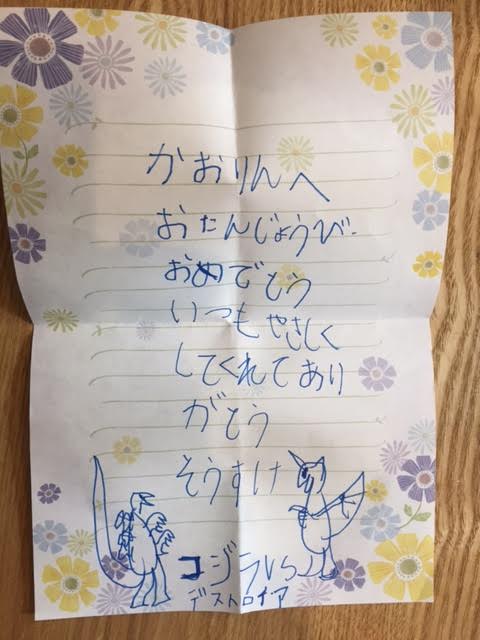 かおりんへ
おたんじょうび
おめでとう
いつもやさしく
してくれてあり
がとう
そうすけ
コジラVS
デストロイア